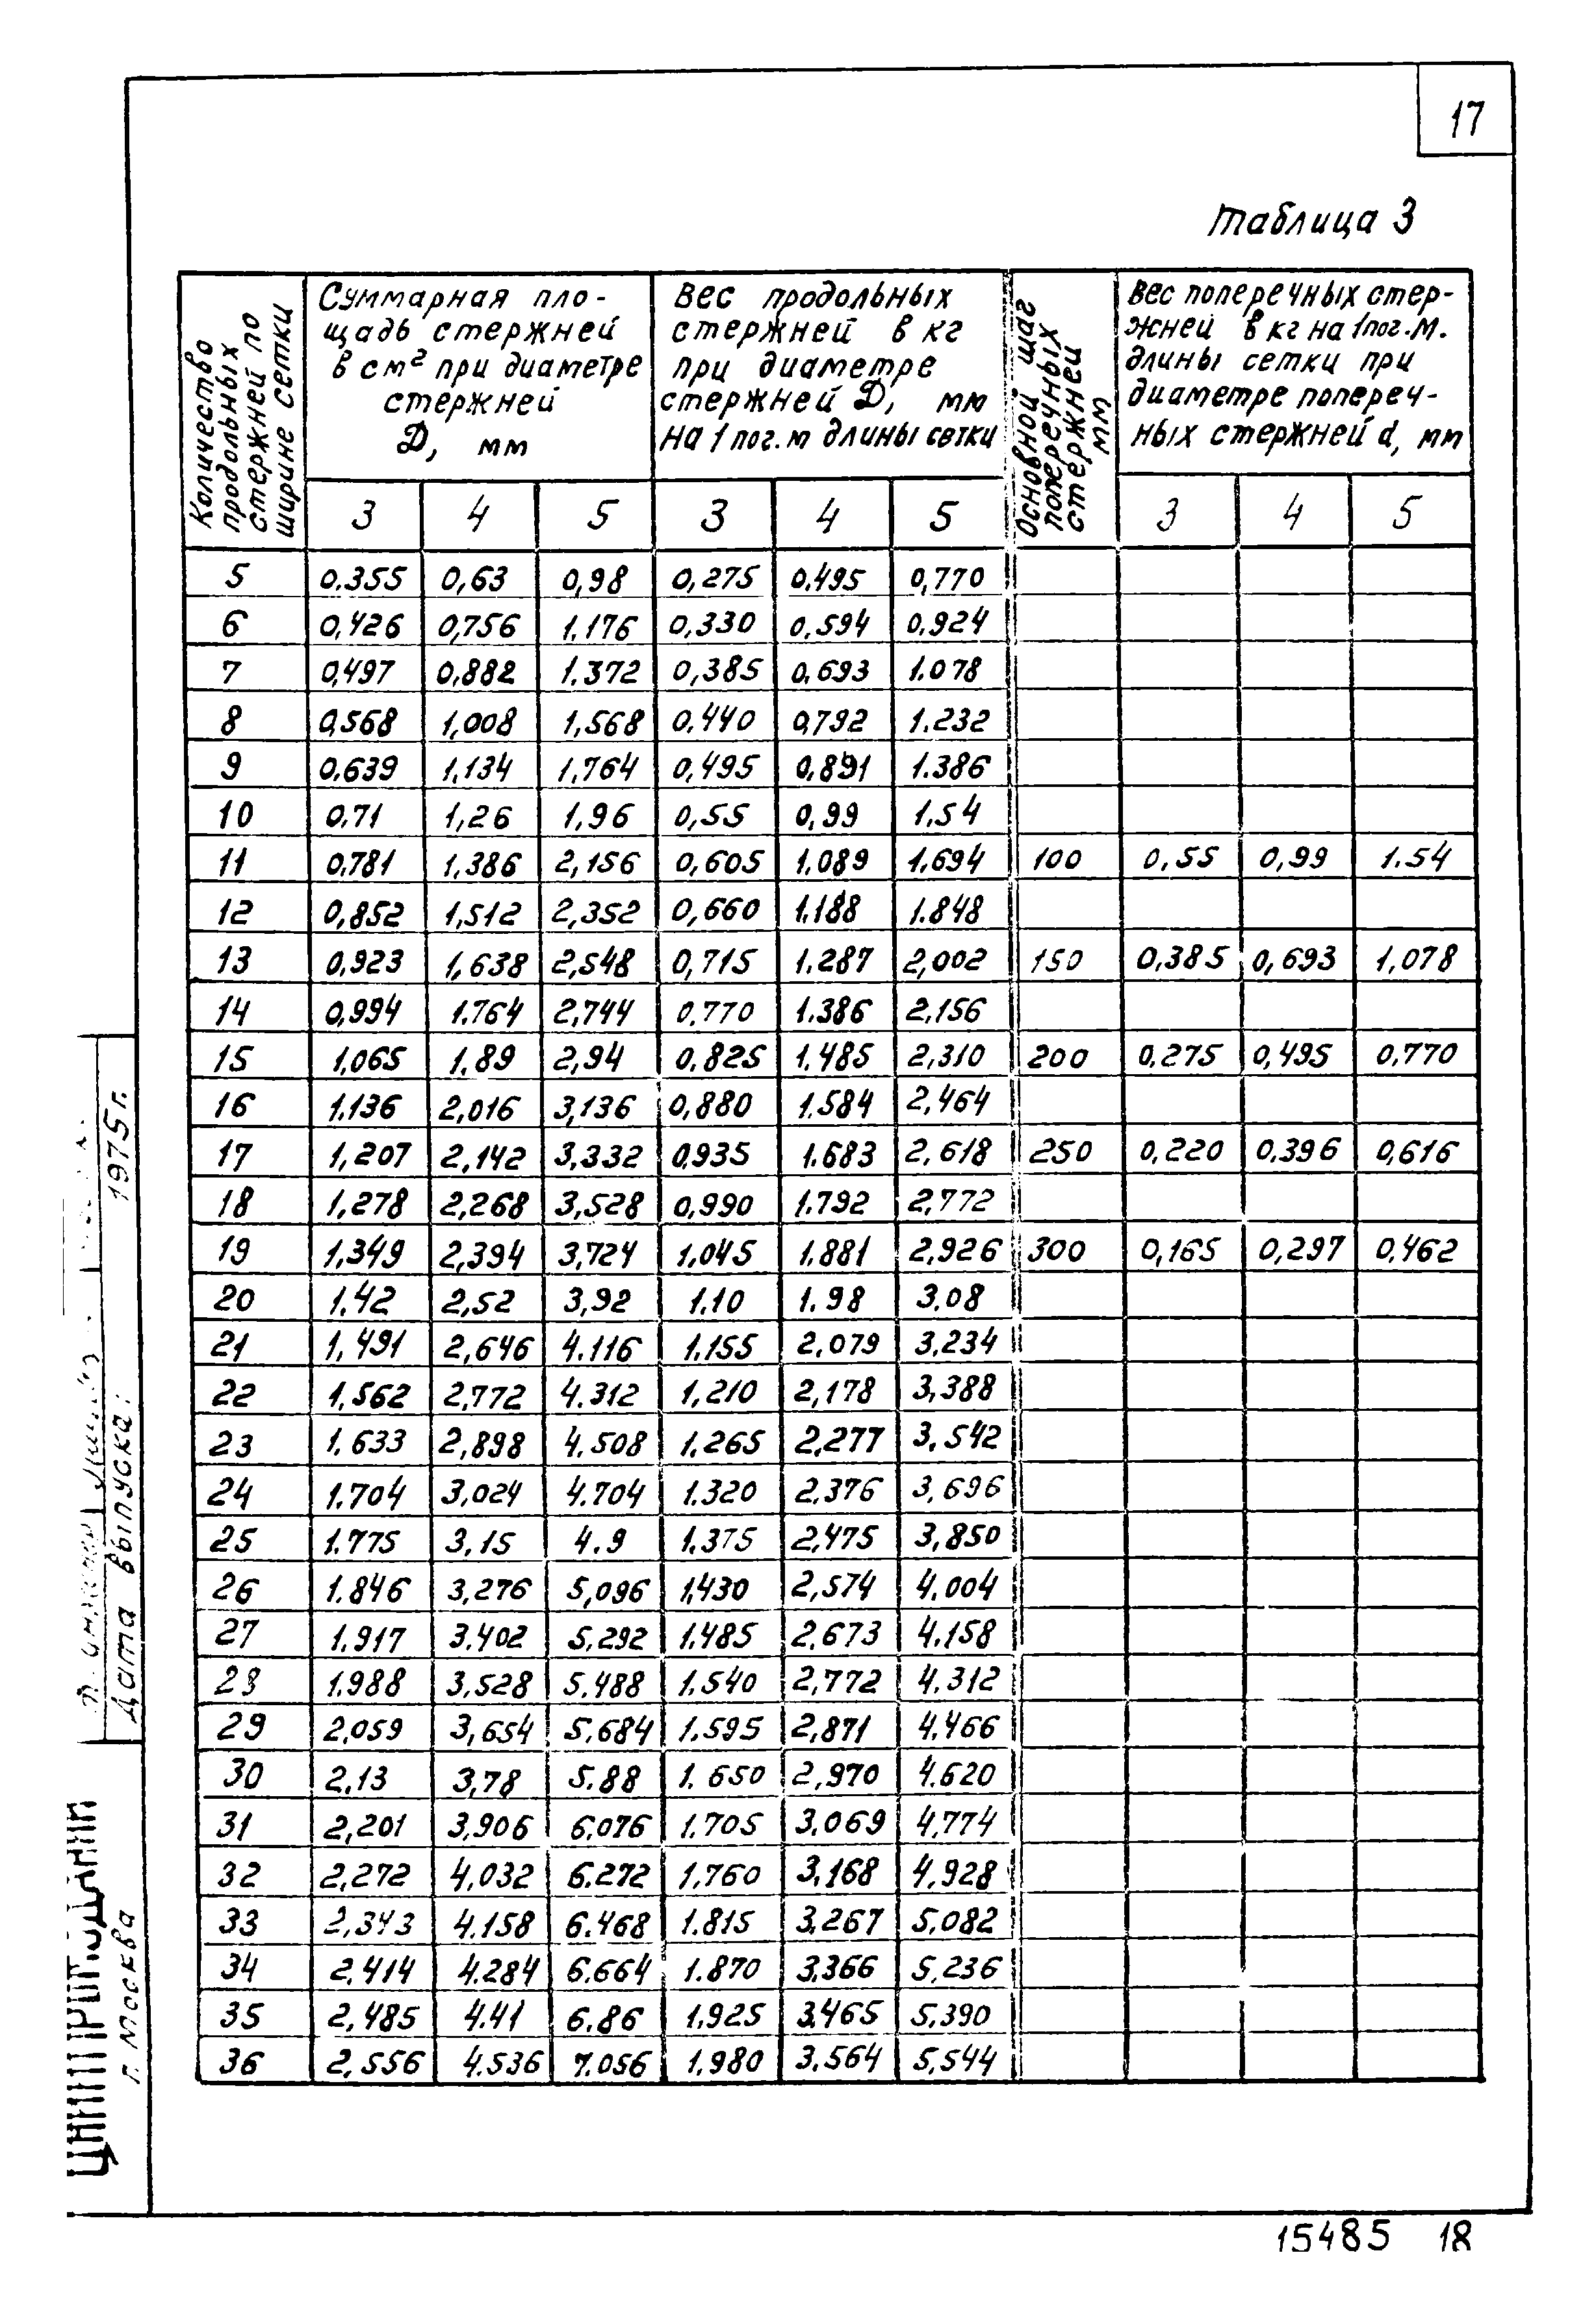 17
Таблица 3
Количество продольных стержней по ширине сетки
Суммарная пло-
щадь стержней
в см² при диаметре
стержней
D, мм
Вес продольных
стержней в кг
при диаметре
стержней D, мм
на 1 пог.м длины сетки
Основной шаг поперечных стержней мм
Вес поперечных стер-
жней в кг на 1 пог.м.
длины сетки при
диаметре попереч-
ных стержней d, мм
3 4 5 3 4 5 3 4 5
5 0.355 0,63 0,98 0,275 0.495 0,770
6 0,426 0,756 1.176 0,330 0.594 0.924
7 0,497 0,882 1.372 0,385 0,693 1.078
8 0,568 1,008 1,568 0.440 0,792 1.232
9 0.639 1.134 1,764 0,495 0,891 1.386
10 0.71 1,26 1,96 0,55 0,99 1.54
11 0.781 1,386 2,156 0,605 1.089 1.694 100 0,55 0,99 1.54
12 0,852 1,512 2,352 0,660 1.188 1.848
13 0,923 1,638 2,548 0,715 1.287 2,002 150 0,385 0,693 1,078
14 0,994 1.764 2,744 0.770 1.386 2,156
15 1.065 1.89 2,94 0.825 1.485 2,310 200 0,275 0,495 0,770
16 1.136 2,016 3,136 0,880 1.584 2,464
17 1,207 2,142 3,332 0,935 1.683 2,618 250 0,220 0.396 0,616
18 1,278 2,268 3,528 0,990 1.792 2,772
19 1,349 2,394 3,724 1.045 1.881 2,926 300 0,165 0,297 0,462
20 1.42 2,52 3,92 1.10 1.98 3.08
21 1,491 2,646 4.116 1.155 2.079 3,234
22 1,562 2,772 4.312 1,210 2,178 3,388
23 1.633 2,898 4.508 1.265 2,277 3.542
24 1.704 3,024 4.704 1.320 2,376 3,696
25 1.775 3,15 4.9 1.375 2,475 3,850
26 1.846 3,276 5,096 1,430 2,574 4,004
27 1.917 3.402 5.292 1.485 2,673 4.158
28 1.988 3,528 5.488 1.540 2,772 4.312
29 2,059 3,654 5.684 1.595 2,871 4.466
30 2,13 3,78 5.88 1.650 2,970 4.620
31 2,201 3,906 6,076 1.705 3.069 4,774
32 2,272 4,032 6.272 1,760 3,168 4,928
33 2,343 4.158 6.468 1.815 3,267 5,082
34 2,414 4.284 6.664 1.870 3,366 5,236
35 2,485 4.41 6.86 1,925 3,465 5,390
36 2,556 4.536 7.056 1,980 3.564 5,544
Дата выпуска: 1975 г.
г. Москва
15485 18